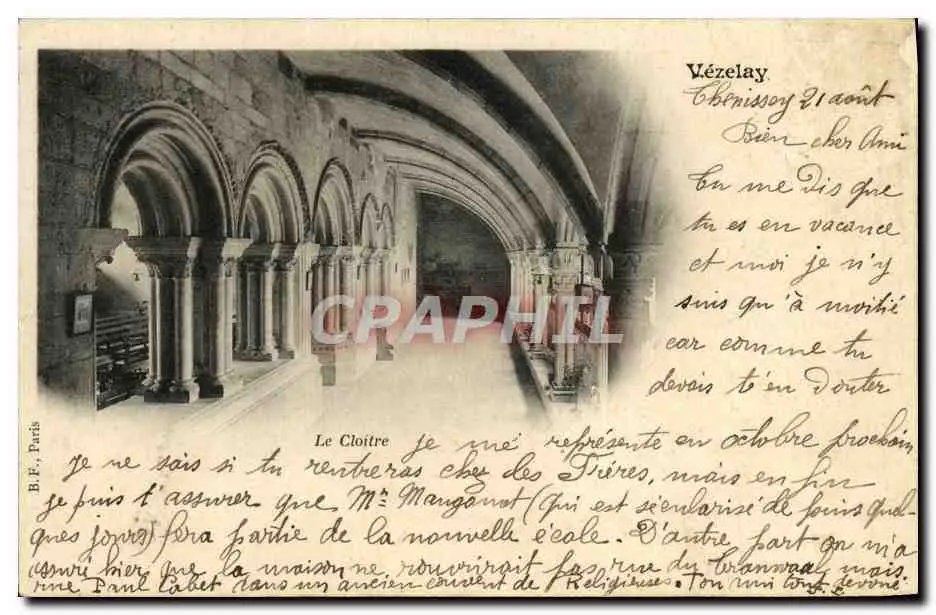 Vézelay
Thenissey 21 août
Bien cher Ami
Tu me dis que
tu es en vacance
et moi je n'y
suis qu'à moitié
car comme tu
devais t'en douter
Le Cloître
je me représente en octobre prochain
B. F., Paris
Je ne sais si tu rentreras chez des Frères, mais enfin
je puis t'assurer que Mr. Manganot (qui est sécularisé depuis quel-
ques jours) fera partie de la nouvelle école. D'autre part on m'a
assuré hier que la maison ne rouvrirait pas rue du tramway mais
rue Paul Cabet dans un ancien couvent de Religieuses. Ton ami tout dévoué
CRAPHIL.COM